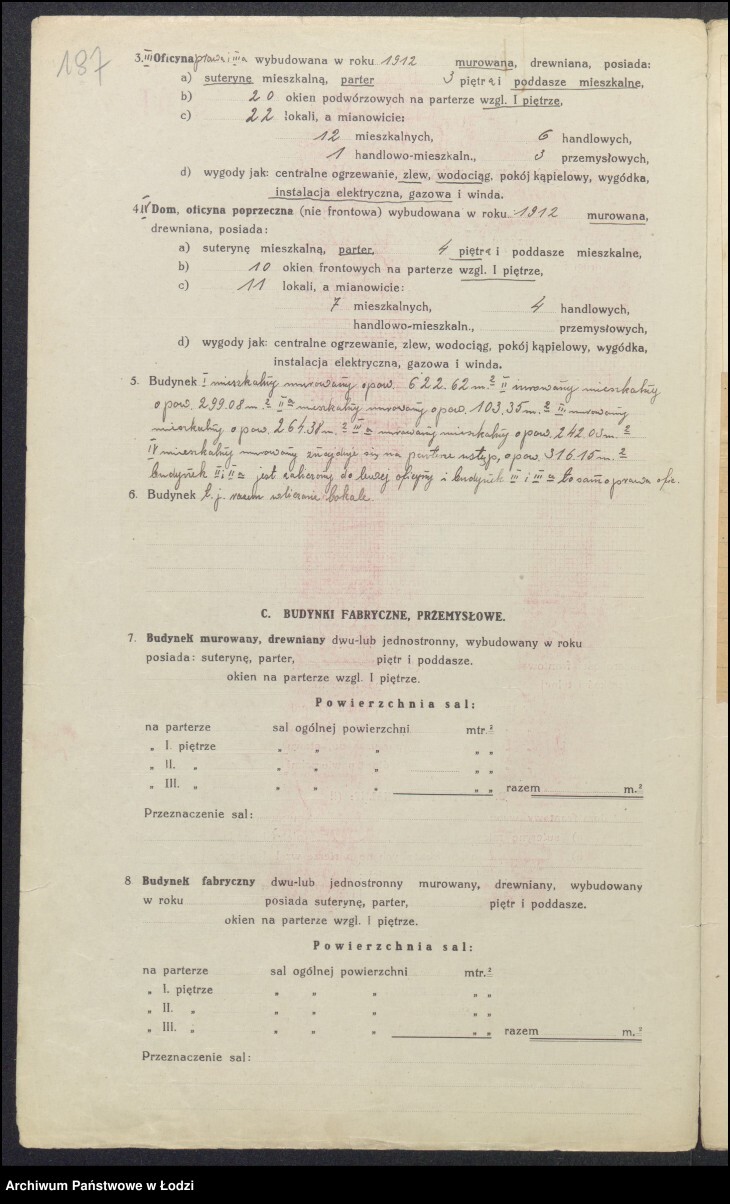 187
3. III Oficyna prawa i III a wybudowana w roku 1912 murowana, drewniana, posiada:
a) suterynę mieszkalną, parter 3 piętra i poddasze mieszkalne,
b) 20 okien podwórzowych na parterze wzgl. I piętrze,
c) 22 lokali, a mianowicie:
12 mieszkalnych, 6 handlowych,
1 handlowo-mieszkaln., 3 przemysłowych,
d) wygody jak: centralne ogrzewanie, zlew, wodociąg, pokój kąpielowy, wygódka,
instalacja elektryczna, gazowa i winda.
4. IV Dom, oficyna poprzeczna (nie frontowa) wybudowana w roku 1912 murowana,
drewniana, posiada:
a) suterynę mieszkalną, parter, 4 piętra i poddasze mieszkalne,
b) 10 okien frontowych na parterze wzgl. I piętrze,
c) 11 lokali, a mianowicie:
7 mieszkalnych, 4 handlowych,
handlowo-mieszkaln., przemysłowych,
d) wygody jak: centralne ogrzewanie, zlew, wodociąg, pokój kąpielowy, wygódka,
instalacja elektryczna, gazowa i winda.
5. Budynek I mieszkalny murowany o pow. 622.62 m.2 II murowany mieszkalny
o pow. 299.08 m.2 II a mieszkalny murowany o pow. 103.35 m.2 III murowany
mieszkalny o pow. 264.38 m.2 III a murowany mieszkalny o pow. 242.03 m.2
IV mieszkalny murowany znajduje się na parterze ustęp, o pow. 316.15 m.2
budynek II i II a jest zaliczony do lewej oficyny i budynek III i III a to samo prawa ofic.
6. Budynek t. j. razem wliczone lokale.
C. BUDYNKI FABRYCZNE, PRZEMYSŁOWE.
7. Budynek murowany, drewniany dwu-lub jednostronny, wybudowany w roku
posiada: suterynę, parter, piętr i poddasze.
okien na parterze wzgl. I piętrze.
Powierzchnia sal:
na parterze sal ogólnej powierzchni mtr.2
„ I. piętrze „ „ „ „ „
„ II. „ „ „ „ „ „
„ III. „ „ „ „ „ „ razem m.2
Przeznaczenie sal:
8 Budynek fabryczny dwu-lub jednostronny murowany, drewniany, wybudowany
w roku posiada suterynę, parter, piętr i poddasze.
okien na parterze wzgl. I piętrze.
Powierzchnia sal:
na parterze sal ogólnej powierzchni mtr.2
„ I. piętrze „ „ „ „ „
„ II. „ „ „ „ „ „
„ III. „ „ „ „ „ „ razem m.2
Przeznaczenie sal:
Archiwum Państwowe w Łodzi